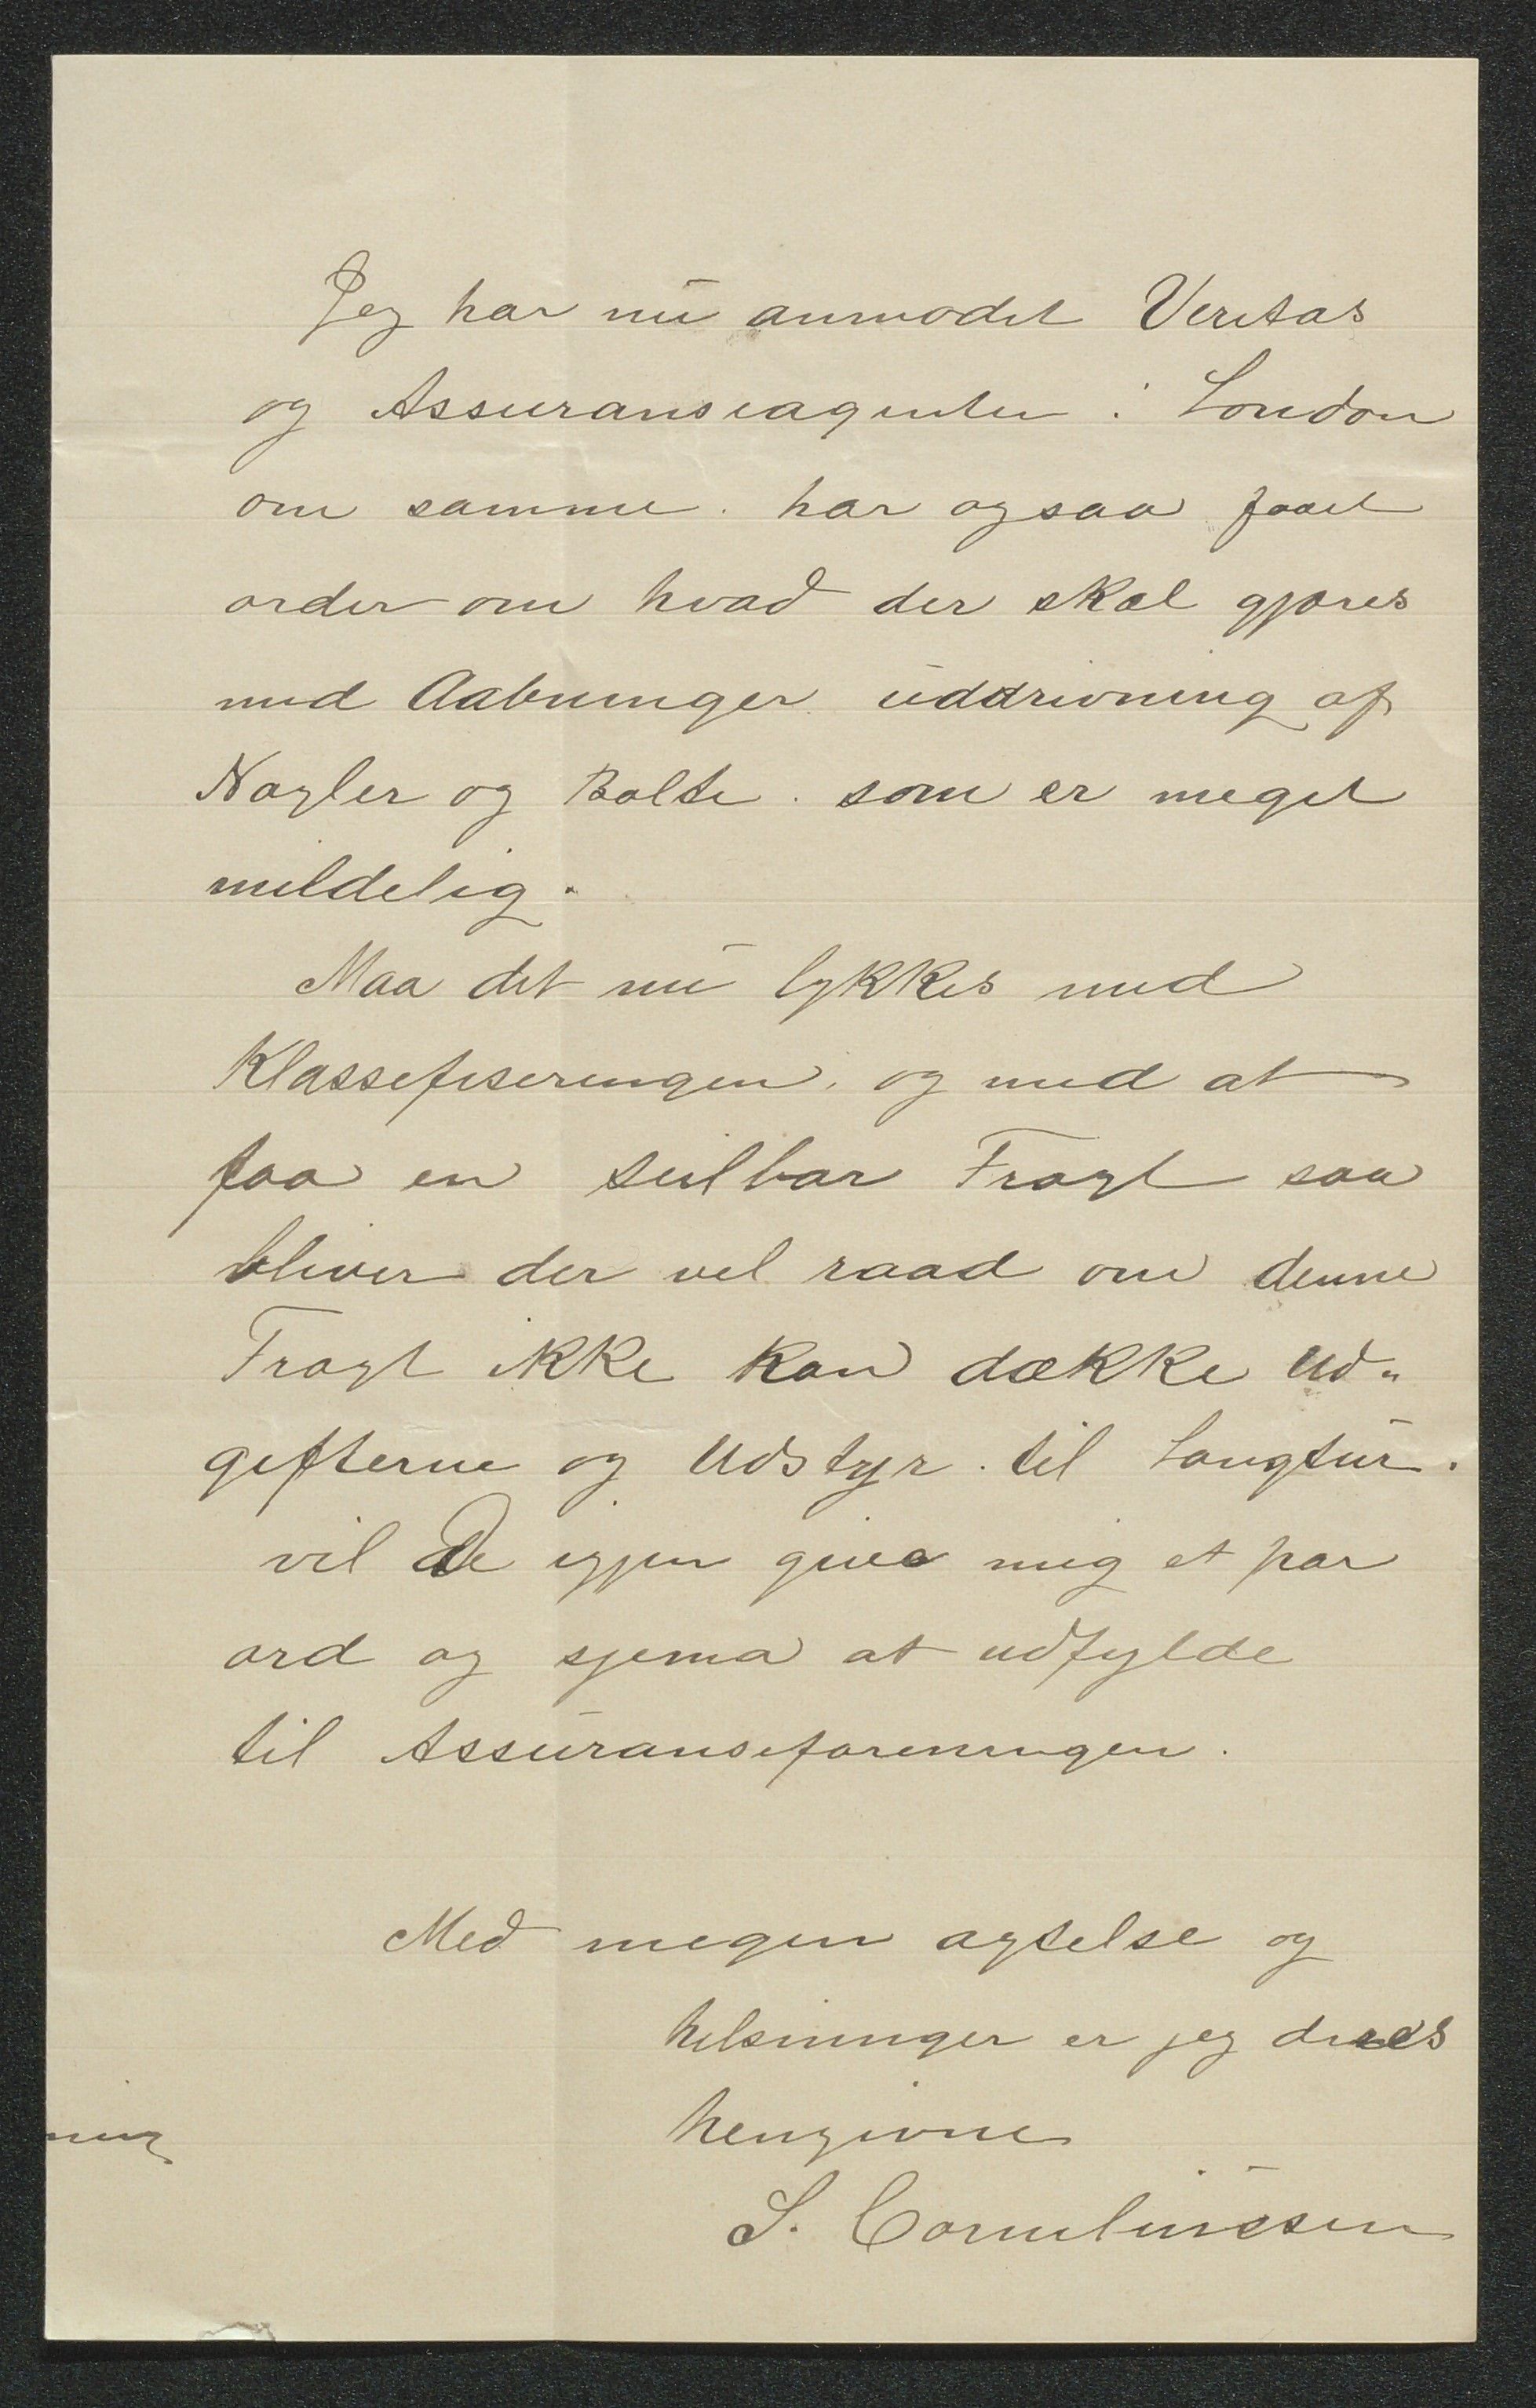 Jeg har nu anmodet Veritas
og Assuranseagenten i London
om samme. har ogsaa faaet
order om hvad der skal gjøres
med Aabninger uddrivning af
Nagler og Bolte. som er meget
mildelig.
Maa det nu lykkes med
Klassefiseringen, og med at
faa en seilbar Fragt saa
bliver der vel raad om denne
Fragt ikke kan dække Ud„
gifterne og Udstyr. til Langtur.
vil De igjen give mig et par
ord og sjema at udfylde
til Assuranseforeningen.
Med megen agtelse og
helsninger er jeg deres
hengivne
S. Corneliussen